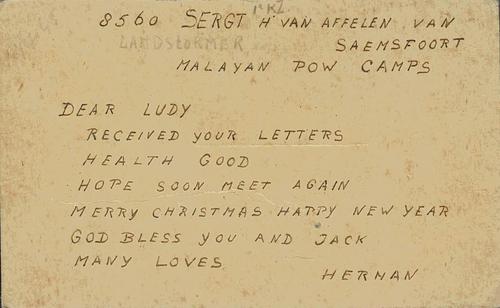 8560 SERGT H. VAN AFFELEN VAN
LANDSTORMER SAEMSFOORT
MALAYAN POW CAMPS
DEAR LUDY
RECEIVED YOUR LETTERS
HEALTH GOOD
HOPE SOON MEET AGAIN
MERRY CHRISTMAS HAPPY NEW YEAR
GOD BLESS YOU AND JACK
MANY LOVES
HERMAN